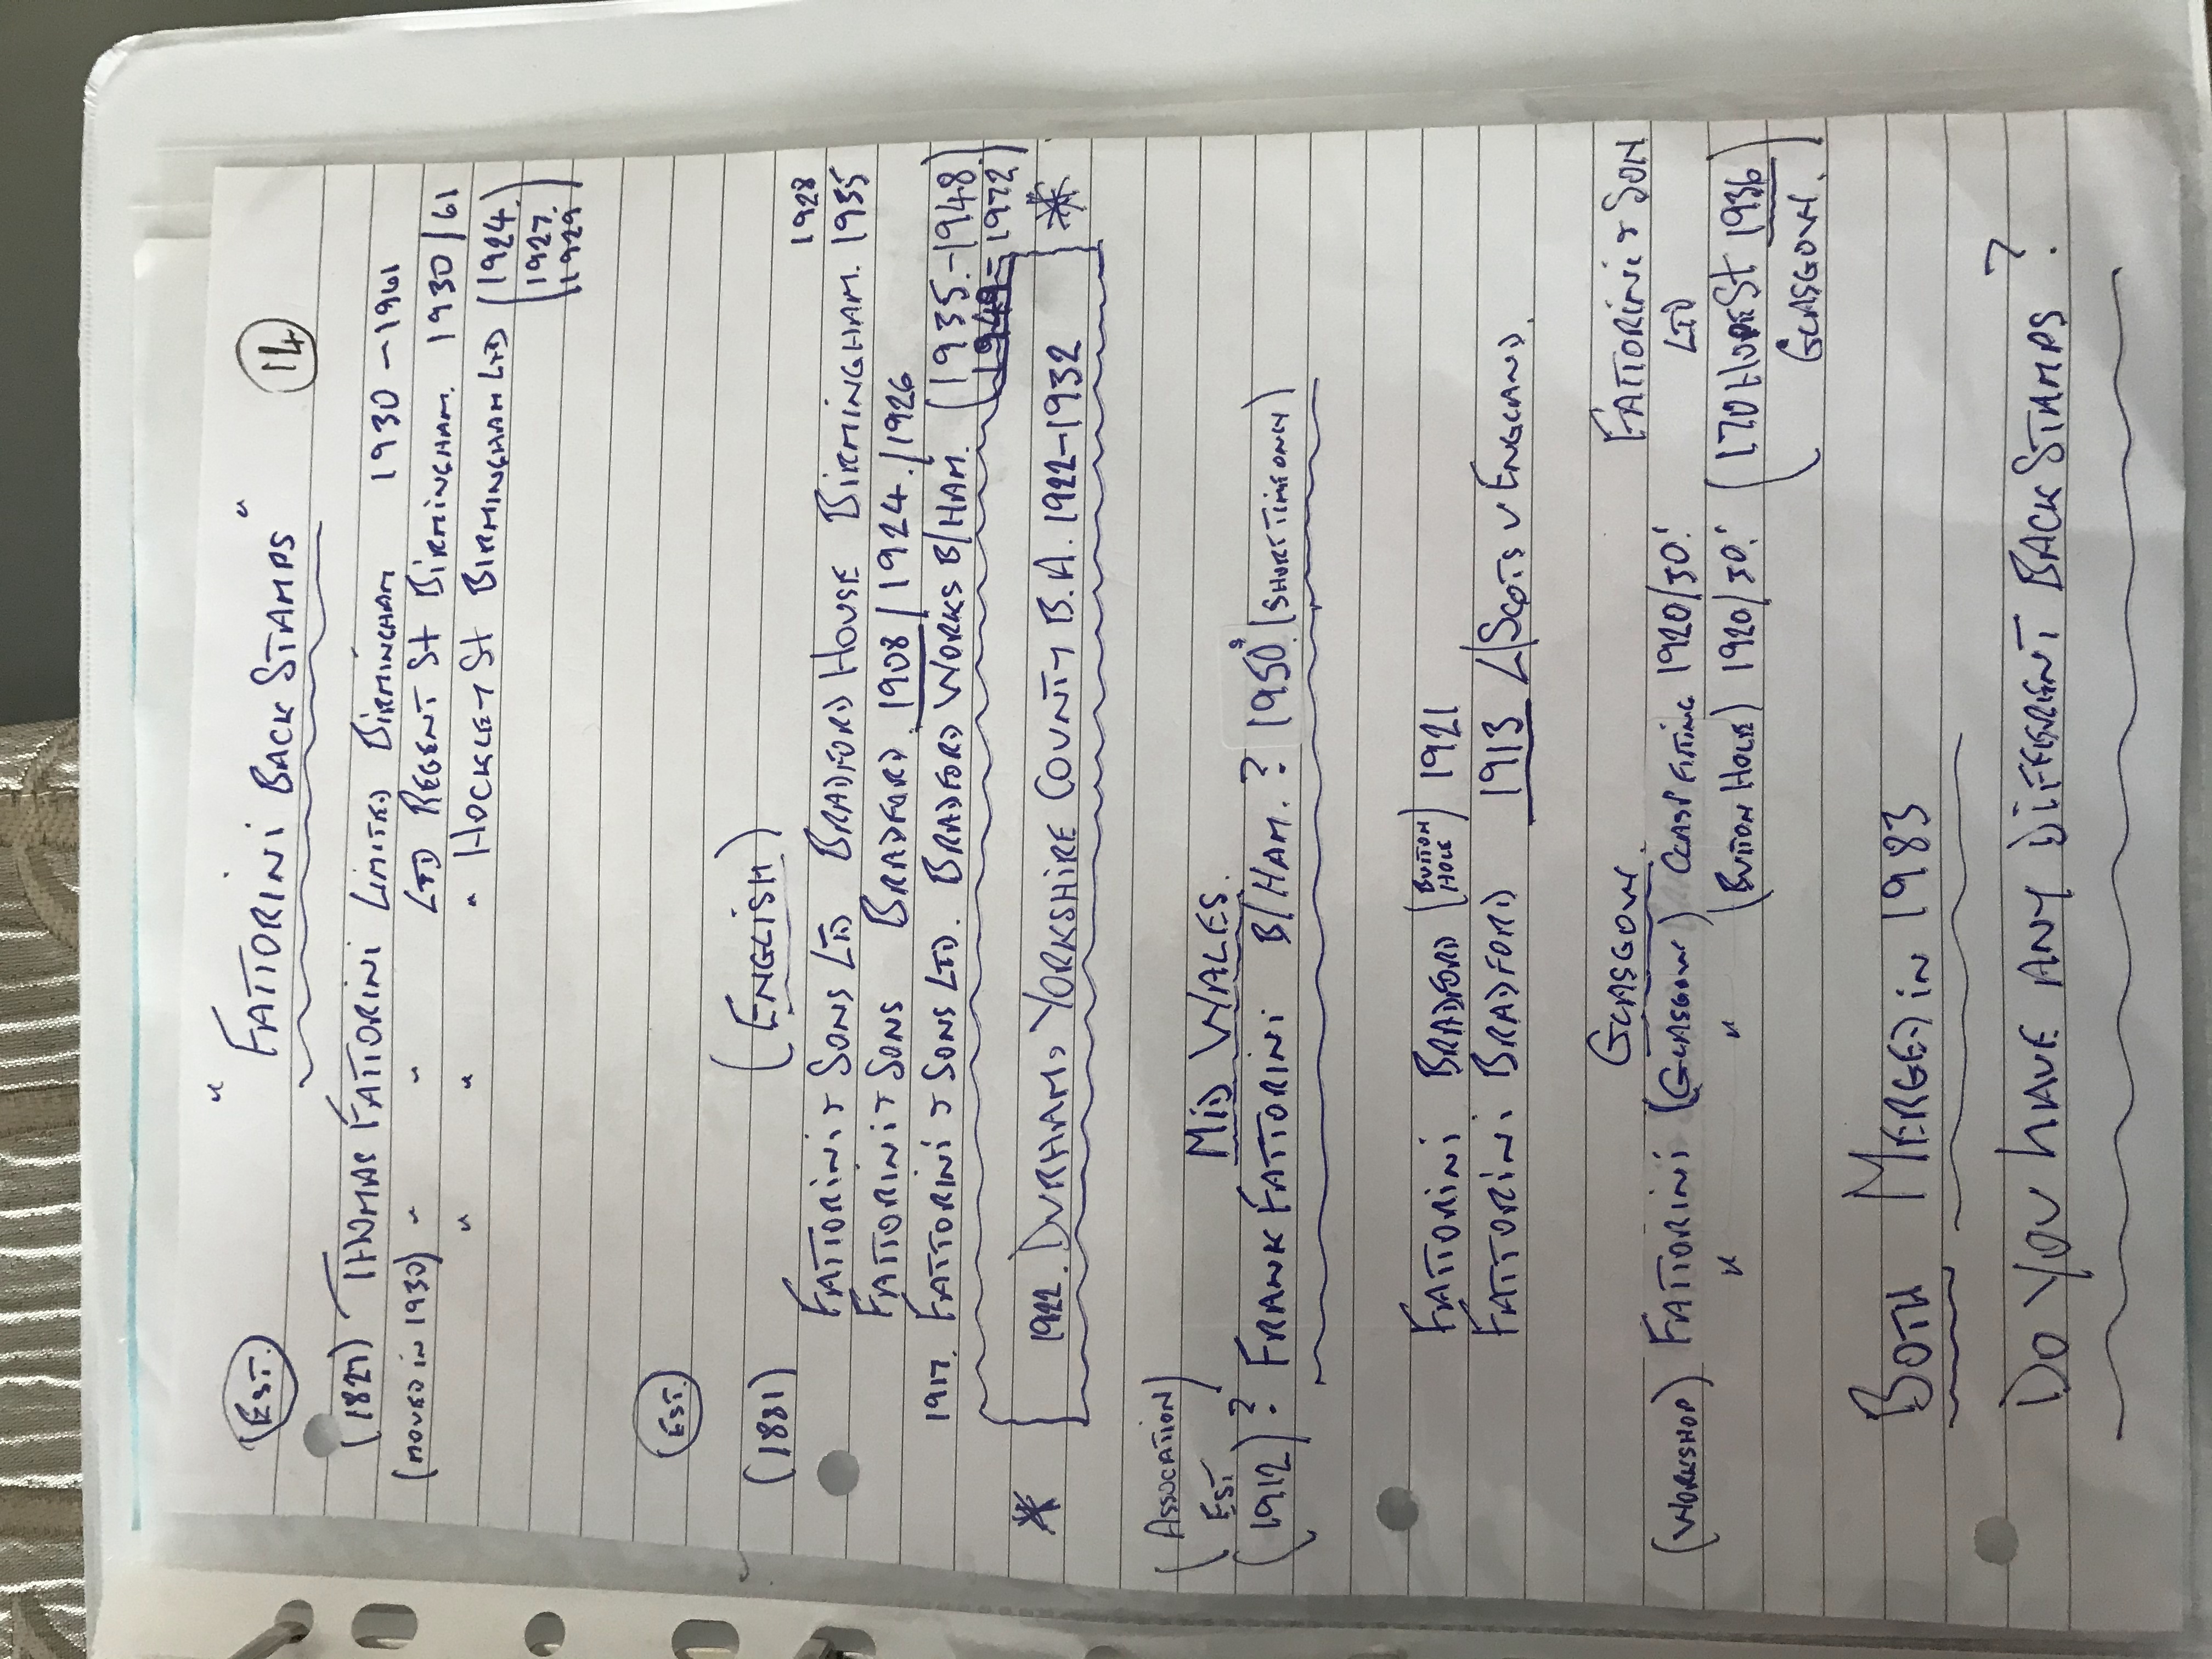 " FATTORINI BACK STAMPS " 14
EST.
(1827) THOMAS FATTORINI LIMITED BIRMINGHAM 1930-1961
(MOVED IN 1930) " " LTD REGENT St BIRMINGHAM. 1930/61
" " " HOCKLEY St BIRMINGHAM LTD (1924)
(1927.
1929)
EST.
(ENGLISH)
(1881)
FATTORINI & SONS LTD BRADFORD HOUSE BIRMINGHAM. 1928 1935
FATTORINI & SONS BRADFORD. 1908/1924./1926
1917. FATTORINI & SONS LTD. BRADFORD WORKS B/HAM. (1935.-1948)
(1949=1972)
* 1922. DURHAM & YORKSHIRE COUNTY B.A. 1922-1932 *
(ASSOCATION)
(EST MID WALES.
(1912)? FRANK FATTORINI B/HAM.? 1950s (SHORT TIME ONLY)
FATTORINI BRADFORD (BUTTON HOLE) 1921
FATTORINI BRADFORD 1913 / SCOTS V ENGLAND.
GLASGOW. FATTORINI & SON
(WORKSHOP) FATTORINI (GLASGOW) CLASP FITING 1920/30! LTD
" " (BUTTON HOLE) 1920/30! (170 HOPE St 1936)
GLASGOW.)
BOTH MERGED IN 1983
DO YOU HAVE ANY DIFFERENT BACK STAMPS?